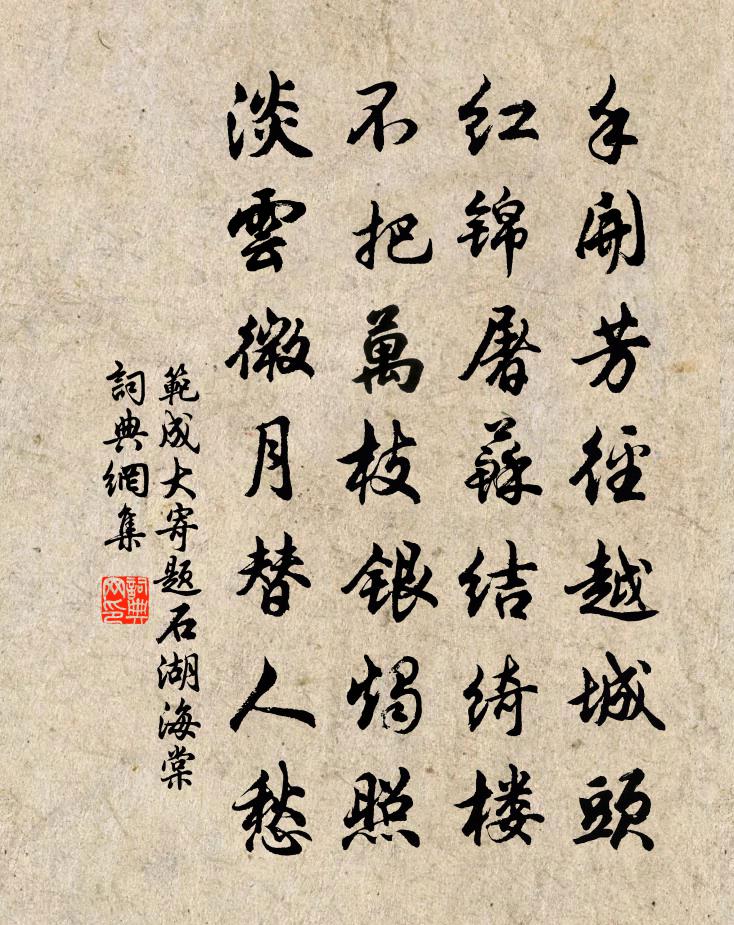 手開芳徑越城頭
红锦屠蘇结綺楼
不把萬枝银燭照
淡雲微月替人愁
範成大寄题石湖海棠
詞典網集
詞典網印